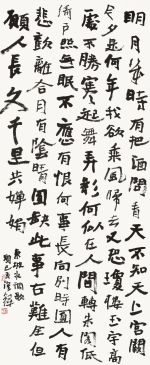 明月几時有把酒問青天不知天上宫闕
今夕是何年我欲乘風歸去又恐瓊樓玉宇高
處不勝寒起舞弄清影何似在人間轉朱閣低
綺户照無眠不應有恨何事長向别時圓人有
悲歡離合月有陰晴圓缺此事古難全但
願人長久千里共嬋娟
東坡水調歌